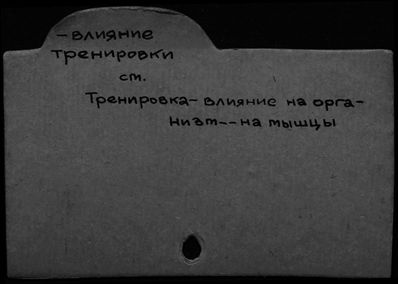 -влияние
тренировки
см.
Тренировка- влияние на орга-
низм--на мышцы